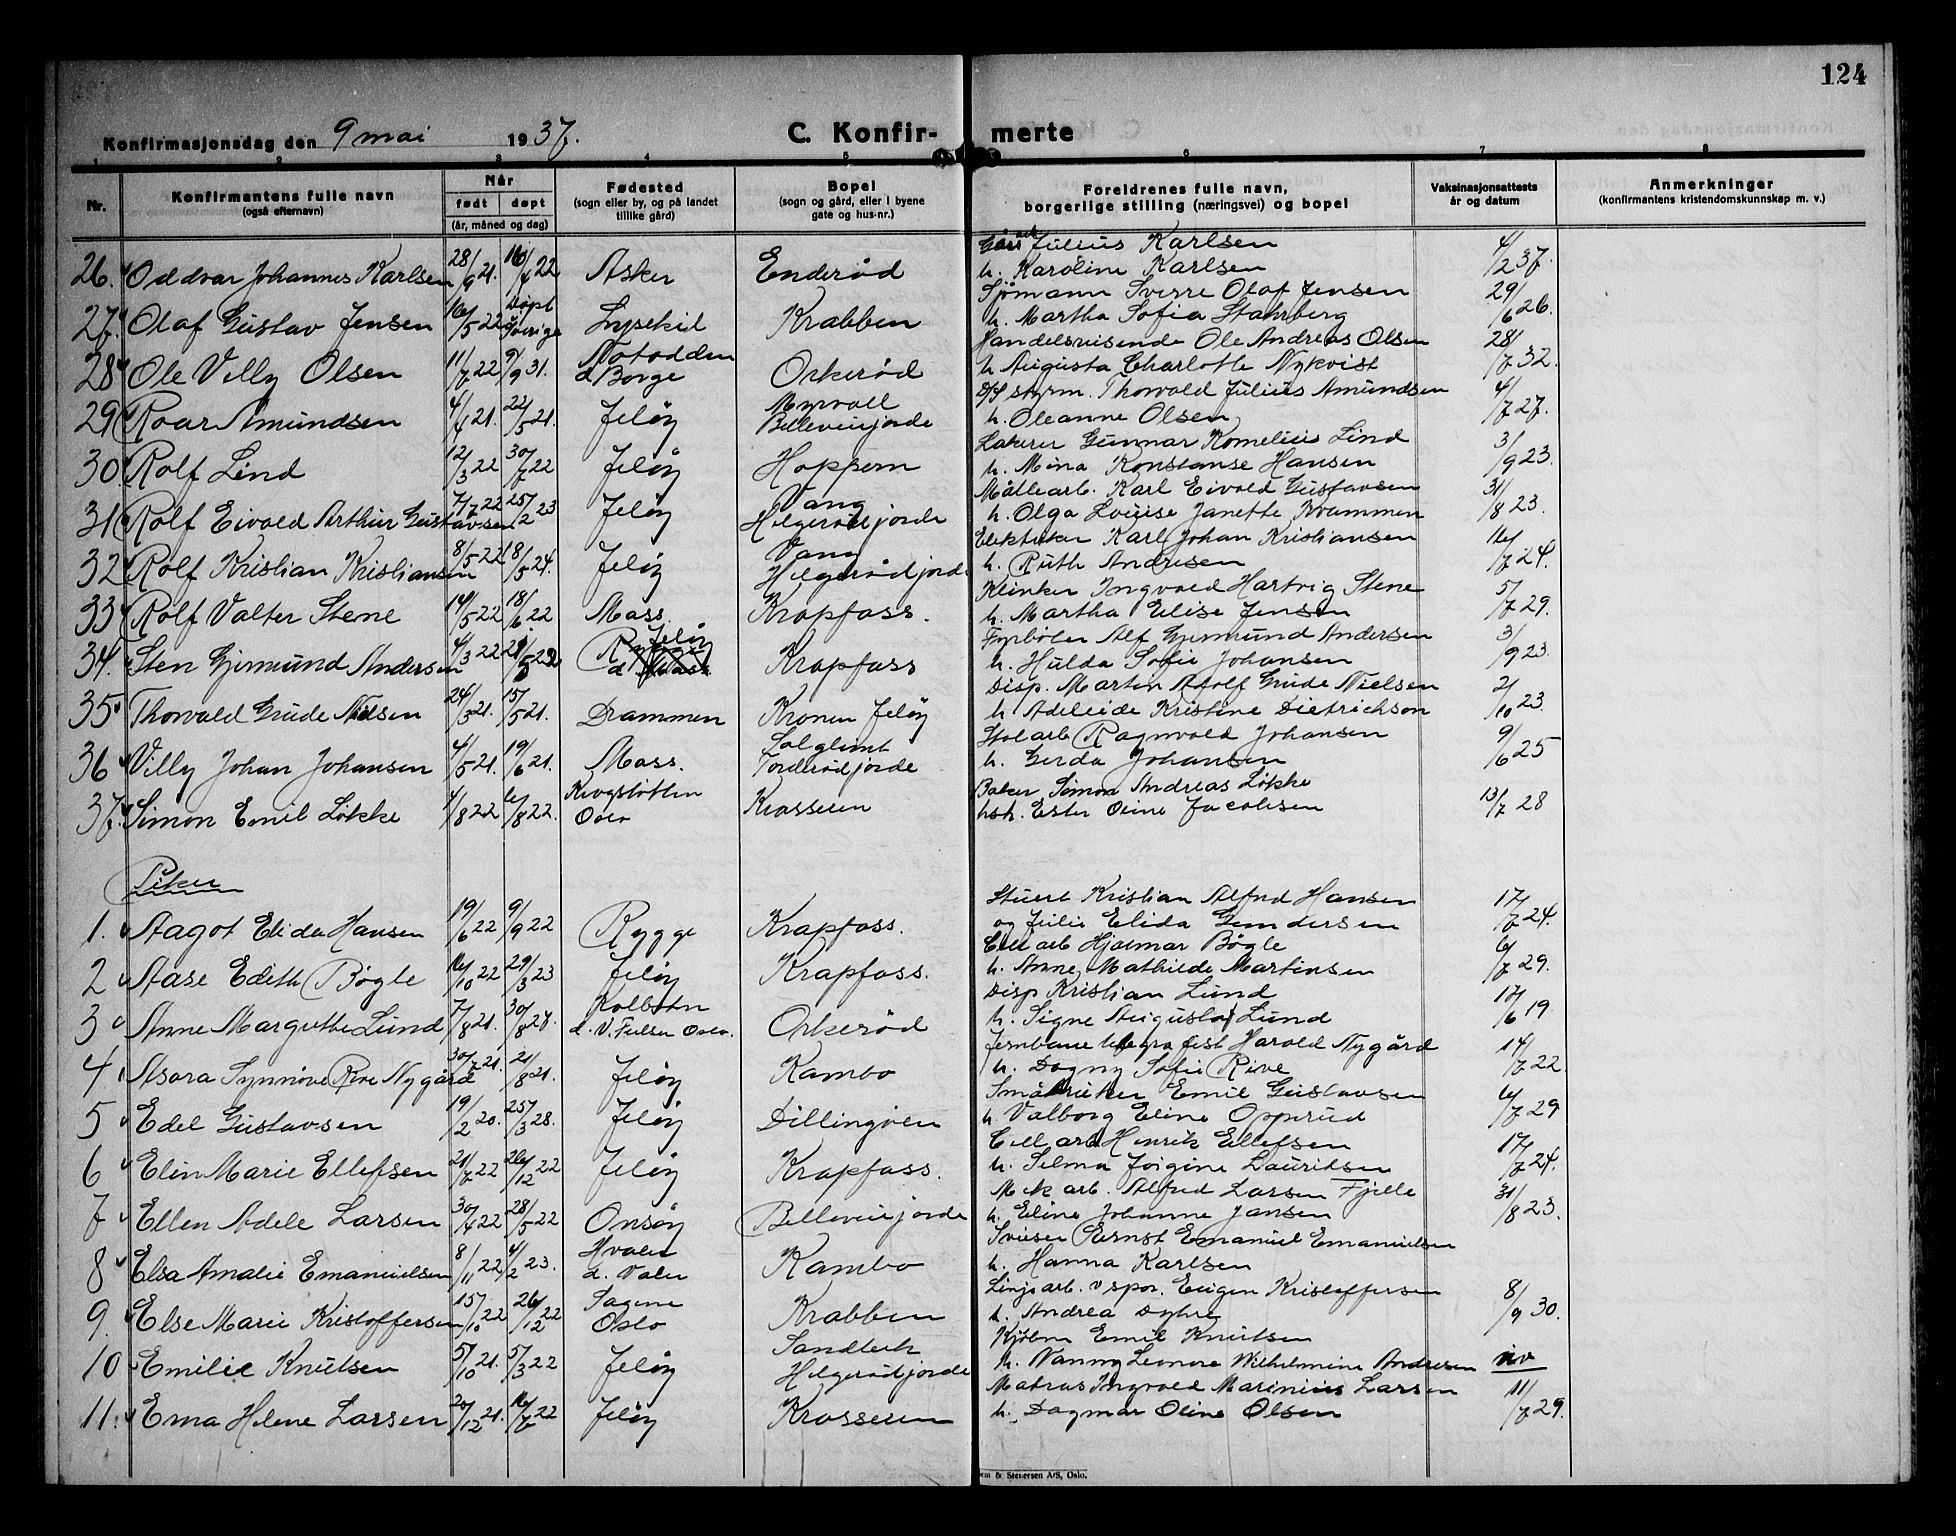 124
Konfirmasjonsdag den 9 mai 1937.
C. Konfir- merte
1 2 3 4 5 6 7 8
Nr.
Konfirmantens fulle navn
(også efternavn)
Når
født døpt
(år, måned og dag)
Fødested
(sogn eller by, og på landet
tillike gård)
Bopel
(sogn og gård, eller i byene
gate og hus-nr.)
Foreldrenes fulle navn,
borgerlige stilling (næringsvei) og bopel
Vaksinasjonsattests
år og datum
Anmerkninger
(konfirmantens kristendomskunnskap m. v.)
Julius Karlsen
26. Oddvar Johannes Karlsen 28/9 21. 22 Asker Enderød h. Karoline Karlsen 4/2 37.
Sjømann Sverre Olaf Jensen
27. Olaf Gustav Jensen 16/5 22 Døpt i Sverige Lysekil Krabben h. Martha Sofia Stahrberg 29/6 26.
Handelsreisende Ole Andreas Olsen
28 Ole Villy Olsen 11/7 22 9/9 31. Notodden d. Borge Orkerød h. Augusta Charlotte Nykvist 28/7 32.
D/S styrm. Thorvald Julius Amundsen
29 Roar Amundsen 21. 22/5 21. Jeløy Myrvoll Bellevuejorde h. Oleanne Olsen 4/7 27.
Lakerer Gunnar Kornelius Lind
30 Rolf Lind 12/3 22 30/7 22 Jeløy Hoppern h. Mina Konstanse Hansen 3/9 23.
Mållearb. Karl Eivold Gustavsen
31 Rolf Eivald Arthur Gustavsen 7/7 22 25/2 23 Jeløy Vang Helgerødjorde h. Olga Lovise Janette Krammen 31/8 23.
Elektriker Karl Johan Kristiansen
32 Rolf Kristian Kristiansen 8/5 22 18/5 24. Jeløy Vang Helgerødjorde h. Ruth Andresen 16/7 24.
Klinker Ingvald Hartvig Stene
33 Rolf Valter Stene 14/5 22 18/6 22 Moss Krapfoss. h. Martha Elise Jensen 5/7 29.
Fyrbøter Alf Gjermund Andersen
34. Sten Gjermund Andersen 4/3 22 Jeløy Krapfoss h. Hulda Sofie Johansen 3/9 23.
Disp. Martin Adolf Grude Nielsen
35 Thorvald Grude Nielsen 24/3 21. 15/5 21. Drammen Kronen Jeløy h. Adeleide Kristine Dietrichson 2/10 23.
Stolarb Ragnvald Johansen
36 Villy Johan Johansen 4/5 21. 19/6 21. Moss. Solglimt Torderødjorde h. Gerda Johansen 9/6 25
Baker Simon Andreas Løkke
37. Simon Emil Løkke 1/8 22 6/8 22. Krogstøtten Oslo Krosseren hsh. Ester Oline Jacobsen 13/7 28
Piker
Stuert Kristian Alfred Hansen
1. Aagot Elida Hansen 19/6 22 9/9 22 Rygge Krapfoss. og Julie Elida Gundersen 17/7 24.
Cell arb Hjalmar Bøgle
2 Aase Edith Bøgle 16/10 22 29/3 23 Jeløy Krapfoss. h. Anne Mathilde Martinsen 6/7 29.
Disp Kristian Lund
3 Anne Margrethe Lund 7/8 21. 30/8 27. Kolbotn d. V. Fulsen Oslo. Orkerød h. Signe Augusta Lund 17/6 19
Jernbanetelegrafist Harald Nygård
4 Asora Synnøve Rive Nygård 30/7 21. 21/8 21. Jeløy Kambo h. Dagny Sofie Rive 14/7 22
Småbruker Emil Gustavsen
5 Edel Gustavsen 19/2 20. 25/3 28. Jeløy Dillingøen h. Valborg Eline Opprud 6/7 29
Cell arb Henrik Ellefsen
6 Elin Marie Ellefsen 21/7 22 26/12 22 Jeløy Krapfoss. h. Selma Jorgine Lauritsen 17/7 24.
Mek arb. Alfred Larsen Fjelle
7 Ellen Adele Larsen 30/4 22 28/5 22 Onsøy Bellevuejorde h. Eline Johanne Jansen 31/8 23.
Sveiser Ernst Emanuel Emanuelsen
8 Elsa Amalie Emanuelsen 8/11 22 4/2 23. Hvaler d. Våler Kambo h. Hanna Karlsen
Linjearb. v spor. Eugen Kristoffersen
9. Else Marie Kristoffersen 15/10 22 26/12 22 Sagene Oslo Krabben h. Andrea Dyhre 8/9 30.
Kjølm Emil Knutsen
10 Emilie Knutsen 5/10 21. 5/3 22 Jeløy Sandbekk Helgerødjorde h. Nanny Leonore Wilhelmine Andresen
Matros Ingvald Marinius Larsen
11. Erna Helene Larsen 20/12 21. 16/7 22 Jeløy Krosseren h. Dagmar Oline Olsen 11/7 29.
& Stenersen A/S, Oslo.